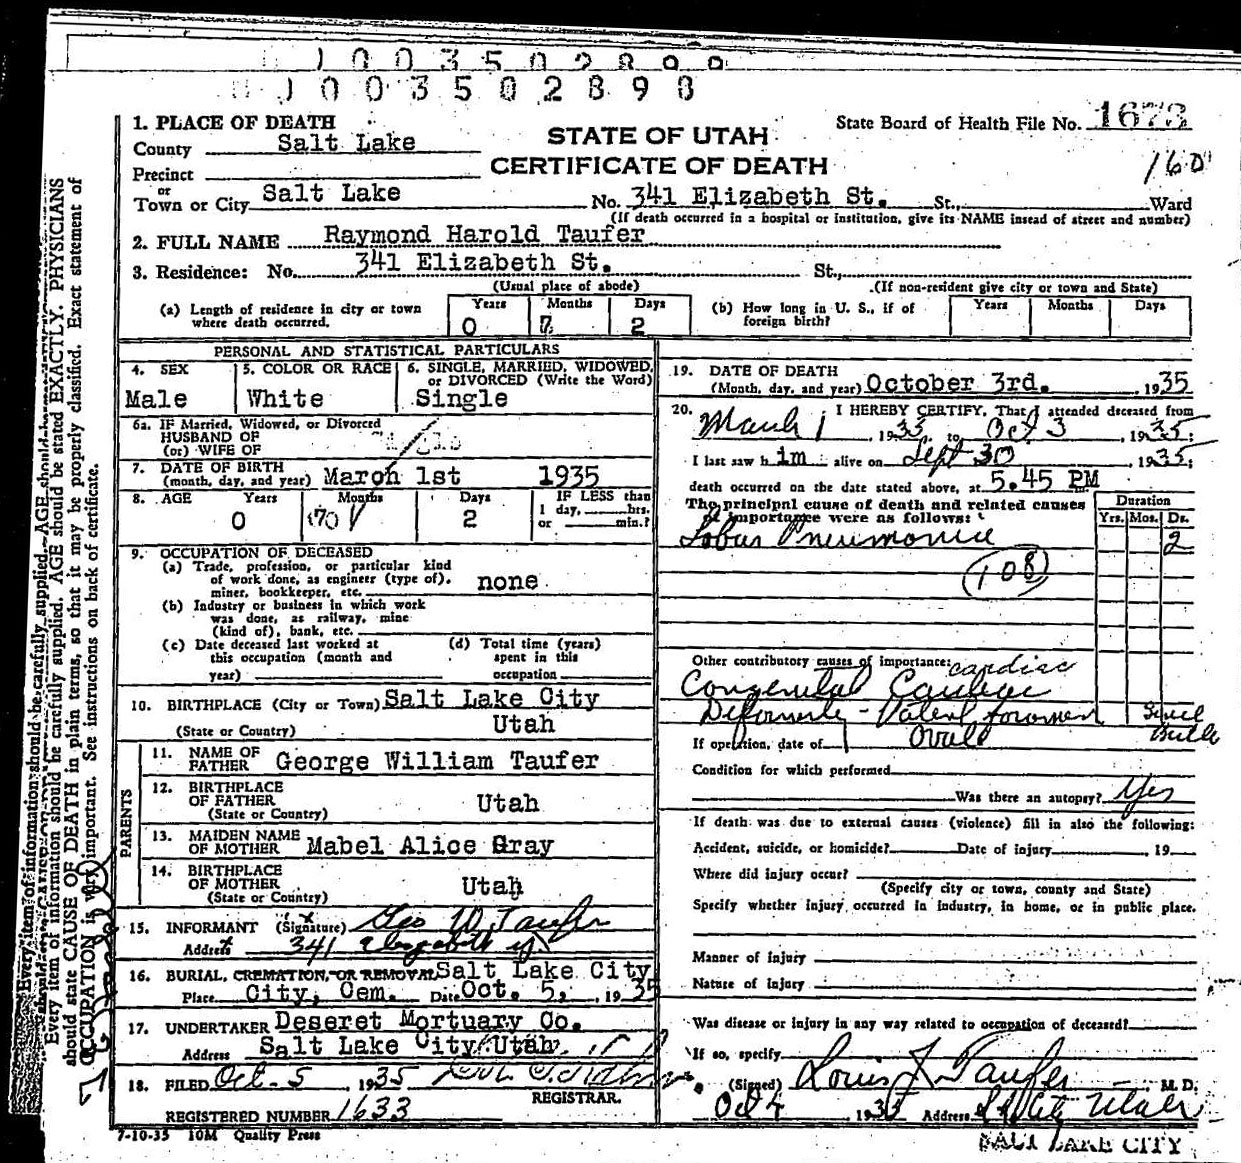 1003502898
1. PLACE OF DEATH
County Salt Lake
STATE OF UTAH
CERTIFICATE OF DEATH
State Board of Health File No. 1673
160
Precinct
or
Town or City Salt Lake No. 341 Elizabeth St. St., Ward
(If death occurred in a hospital or institution, give its NAME insead of street and number)
2. FULL NAME Raymond Harold Taufer
3. Residence: No. 341 Elizabeth St. St.,
(Usual place of abode) (If non-resident give city or town and State)
(a) Length of residence in city or town where death occurred. Years 0 Months 7 Days 2
(b) How long in U. S., if of foreign birth? Years Months Days
PERSONAL AND STATISTICAL PARTICULARS
4. SEX Male
5. COLOR OR RACE White
6. SINGLE, MARRIED, WIDOWED, or DIVORCED (Write the Word) Single
6a. IF Married, Widowed, or Divorced
HUSBAND OF
(or) WIFE OF
7. DATE OF BIRTH
(month, day, and year) March 1st 1935
8. AGE Years 0 Months 7 Days 2
IF LESS than
1 day, hrs.
or min.?
9. OCCUPATION OF DECEASED
(a) Trade, profession, or particular kind
of work done, as engineer (type of),
miner, bookkeeper, etc. none
(b) Industry or business in which work
was done, as railway, mine
(kind of), bank, etc.
(c) Date deceased last worked at
this occupation (month and
year)
(d) Total time (years)
spent in this
occupation
10. BIRTHPLACE (City or Town) Salt Lake City
(State or Country) Utah
PARENTS
11. NAME OF FATHER George William Taufer
12. BIRTHPLACE OF FATHER Utah
(State or Country)
13. MAIDEN NAME OF MOTHER Mabel Alice Gray
14. BIRTHPLACE OF MOTHER Utah
(State or Country)
15. INFORMANT (Signature) Geo W. Taufer
Address 341 Elizabeth
16. BURIAL, CREMATION, OR REMOVAL Salt Lake City
Place City, Cem. Date Oct. 5, 1935
17. UNDERTAKER Deseret Mortuary Co.
Address Salt Lake City Utah
18. FILED Oct. 5 1935
REGISTRAR.
REGISTERED NUMBER 1633
7-10-35 10M Quality Press
19. DATE OF DEATH
(Month, day, and year) October 3rd. 1935
20. I HEREBY CERTIFY, That I attended deceased from
March 1, 1935, to Oct 3 1935;
I last saw h im alive on Sept 30 1935;
death occurred on the date stated above, at 5.45 PM
The principal cause of death and related causes
of importance were as follows:
Duration
Yrs. Mos. Ds.
Lobar Pneumonia 2
108
Other contributory causes of importance: cardiac
Congenital Cardiac
Deformity - Patent foramen Since
Ovale Birth
If operation, date of
Condition for which performed
Was there an autopsy? Yes
If death was due to external causes (violence) fill in also the following:
Accident, suicide, or homicide? Date of injury , 19
Where did injury occur?
(Specify city or town, county and State)
Specify whether injury occurred in industry, in home, or in public place.
Manner of injury
Nature of injury
Was disease or injury in any way related to occupation of deceased?
If so, specify
(Signed) Louis J. Taufer M. D.
Oct 4 1935 Address S L City Utah
SALT LAKE CITY
Every item of information should be carefully supplied. AGE should be stated EXACTLY. PHYSICIANS
should state CAUSE OF DEATH in plain terms, so that it may be properly classified. Exact statement of
OCCUPATION is very important. See instructions on back of certificate.